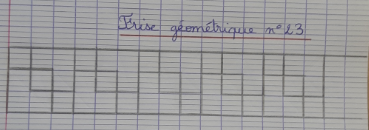 Frise géométrique n°23